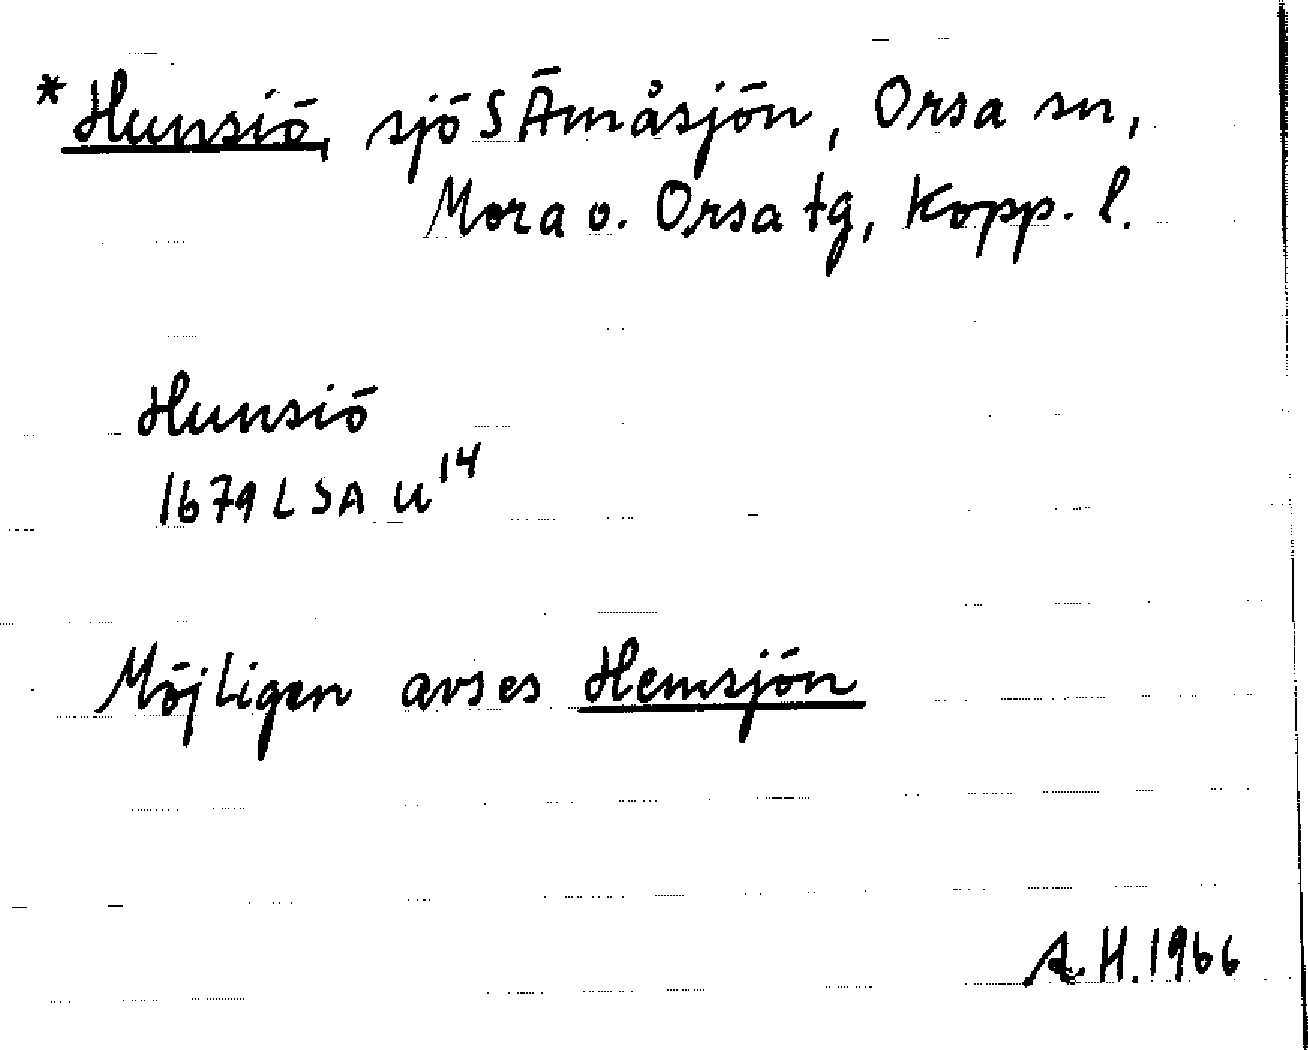 *Hunsiö, sjö S Ämåsjön, Orsa sn,
Mora o. Orsa tg, Kopp. l.
Hunsiö
1679 LSA U14
Möjligen avses Hemsjön
A.H. 1966